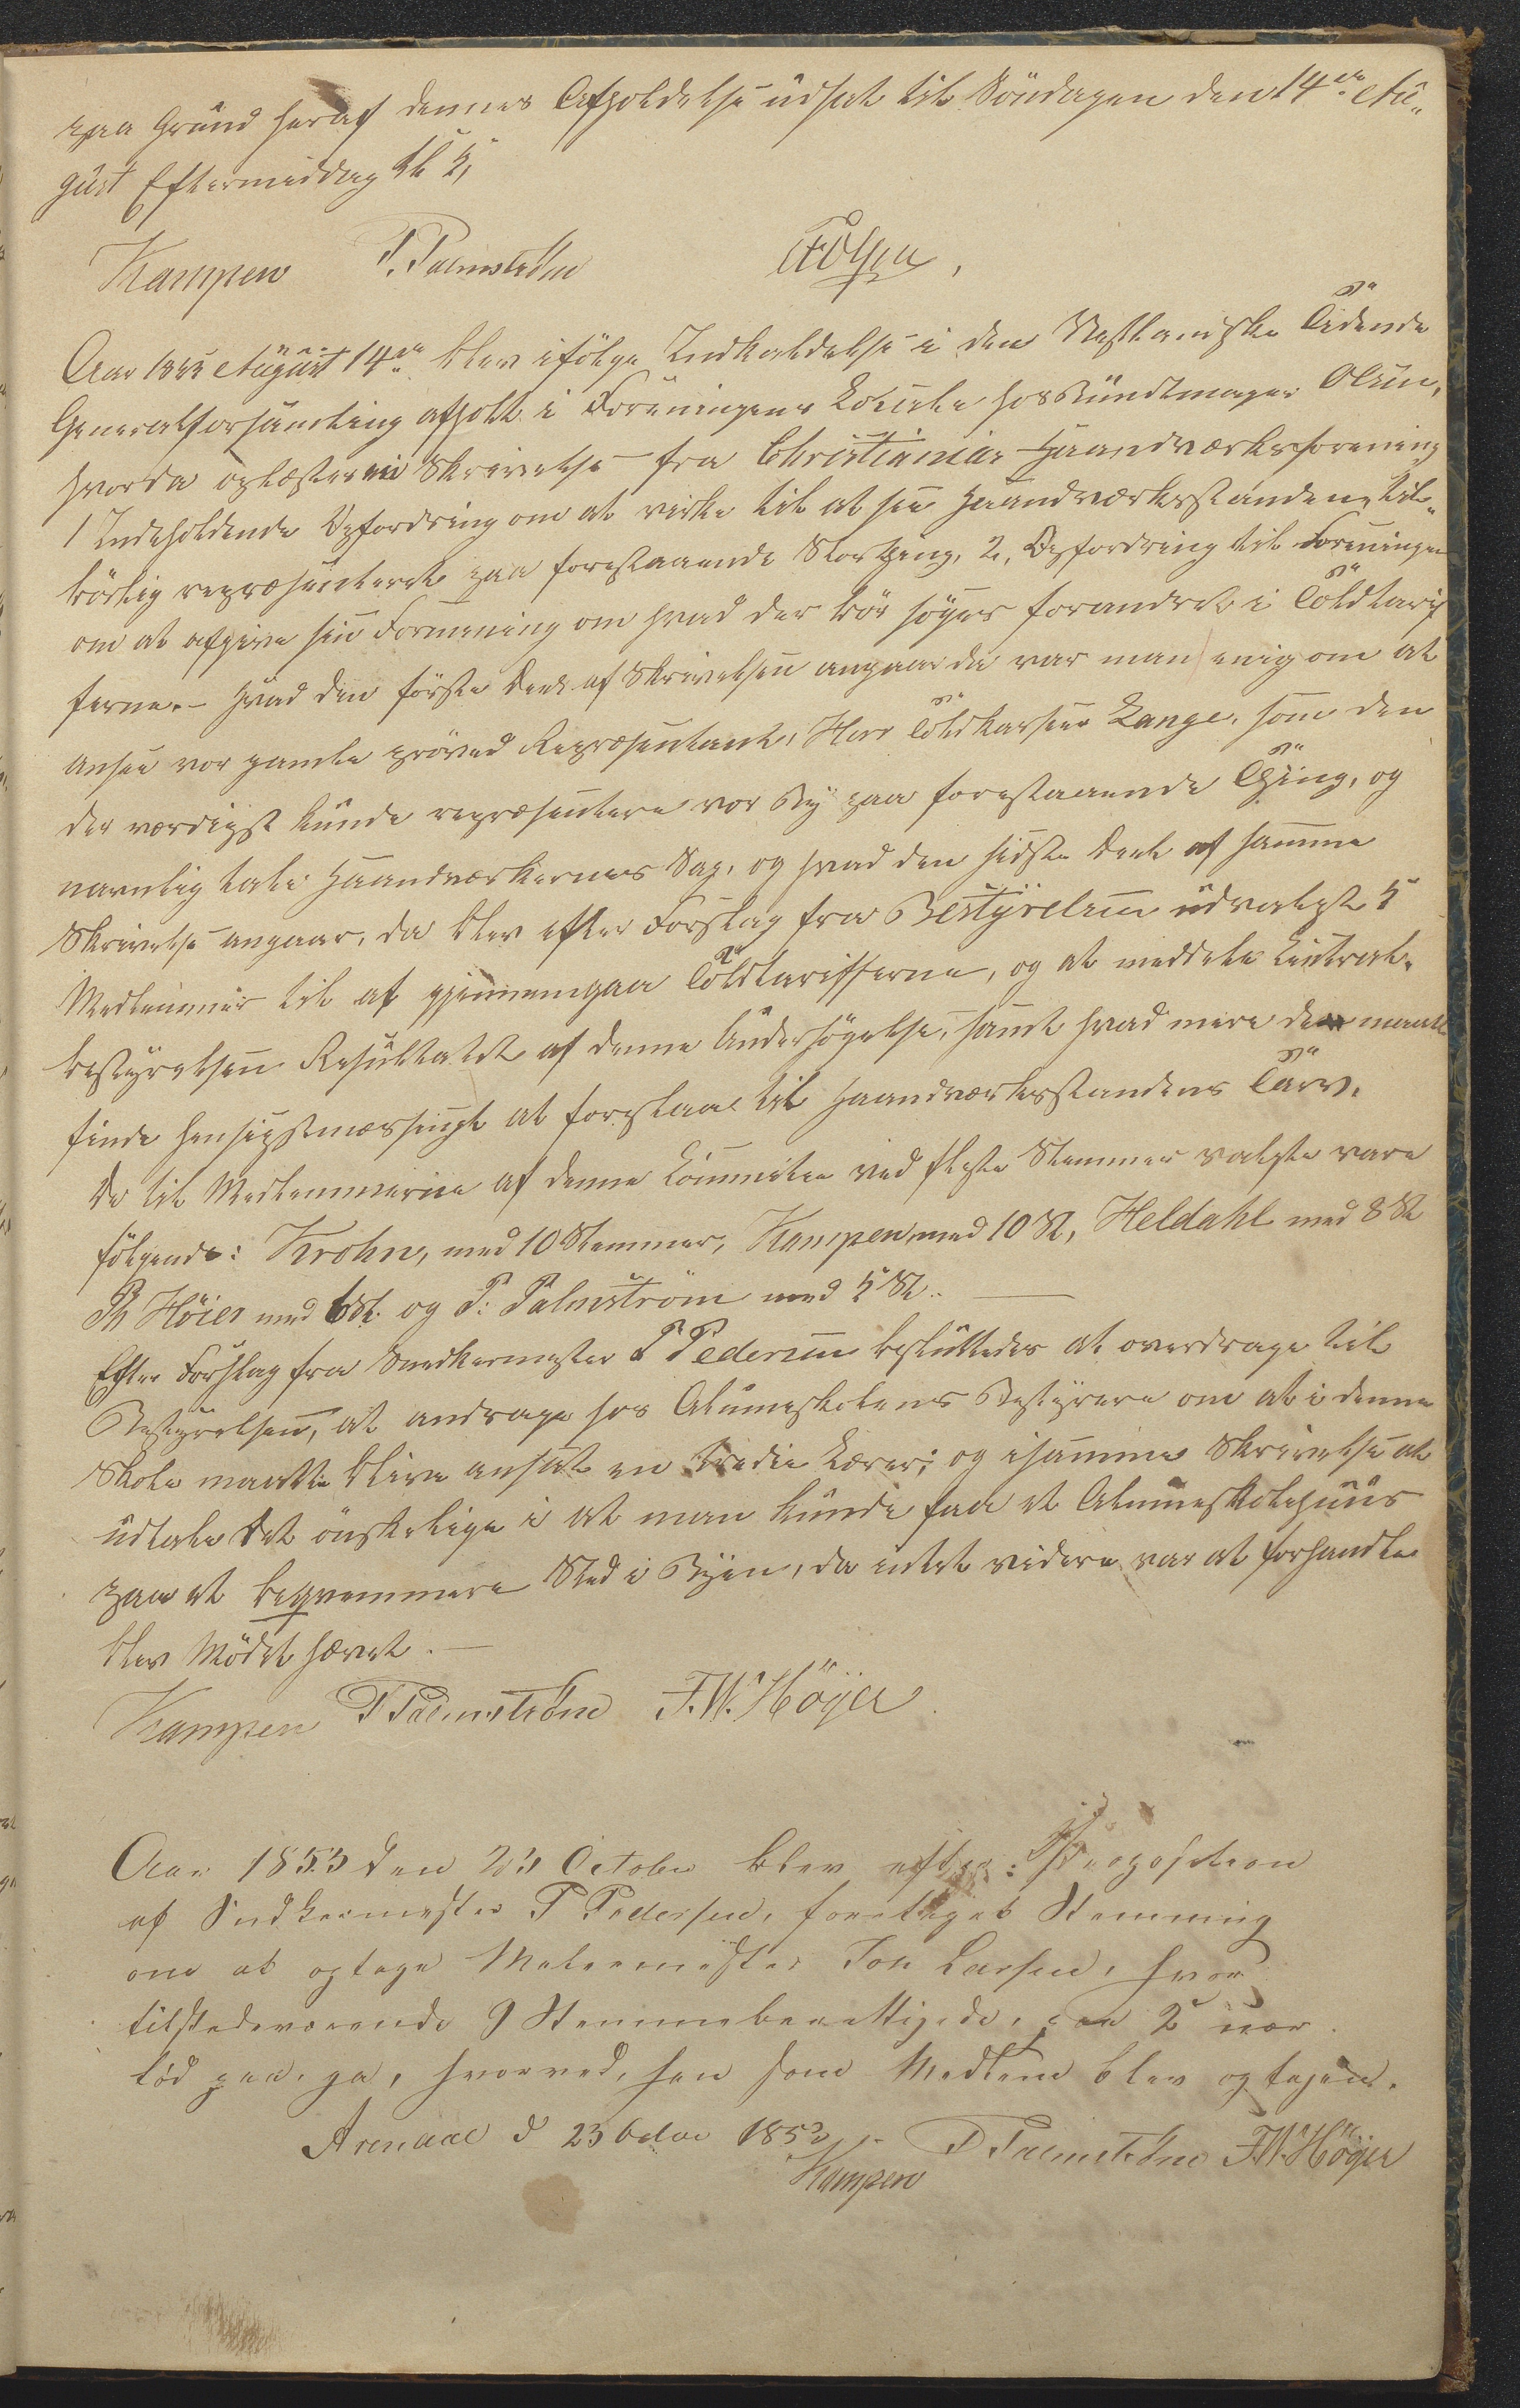 paa Grund heraf dennes Afholdelse udsat til Söndagen den 14de Au-
gust Eftermiddag Kl 5,
Kampen P. Palmström
Aar 1853 August 14de blev ifölge Indkaldelse i den Vestlandske Tidende
Generalforsamling afholt i Foreningens Locale hos Bundtmager Olsen,
hvorda oplæstes en Skrivelse fra Christiania Haandværkerforening
1 Indeholdende Opfordring om at virke til at see Haandværksstanden til-
börlig repræsenteret paa forestaaende Storthing, 2, Opfordring til Foreningen
om at afgive sin Formening om hvad der bör söges forandret i Toldtarif
ferne.- Hvad den förste Deel af Skrivelsen angaar da var man enig om at
ansee vor gamle pröved Repræsentant, Herr Toldkasseer Lange, som den
der værdigst kunde repræsentere vor By paa forestaaende Thing, og
navnlig tale Haandværkernes Sag, og hvad den sidste Deel af samme
Skrivelse angaar, da blev efter Forslag fra Bestyrelsen udvalgt 5
Medlemmer til at gjennemgaa Toldtarifferne, og at meddele Central-
bestyrelsen Resultatet af denne Undersögelse, samt hvad mere den maatte
finde hensigtsmæssigt at foreslaae til Haandværksstandens Tarv.
De til Medlemmerne af denne Committee ved fleste Stemmer valgte vare
fölgende: Krohn, med 10 Stemmer, Kampen med 10 St, Heldahl med 8 St
Th Höier med 6 St. og P: Palmström med 5 St..
Efter Forslag fra Snedkermester P Pedersen besluttedes at overdrage til
Bestyrelsen, at andrage hos Almueskolens Bestyrere om at i denne
Skole maatte blive ansat en tredie Lærer; og i samme Skrivelse at
udtale det önskelige i at man kunde faa et Almueskolehuus
paa et beqvemmere Sted i Byen, da intet videre var at forhandle
blev Mödet hævet.
Kampen P Palmström F.W. Höyer
Aar 1853 den 23 October blev efter Proposition
af Snedkermester P Pedersen, foretaget Stemming
om at optage Malermester Joh Larsen, hvor
tilstedeværende 9 Stemmeberettigede,
lød paa, ja, hvorved, han som Medlem blev optagen.
Arendal d 23 1853
Kampen P Palmström F.W. Höyer